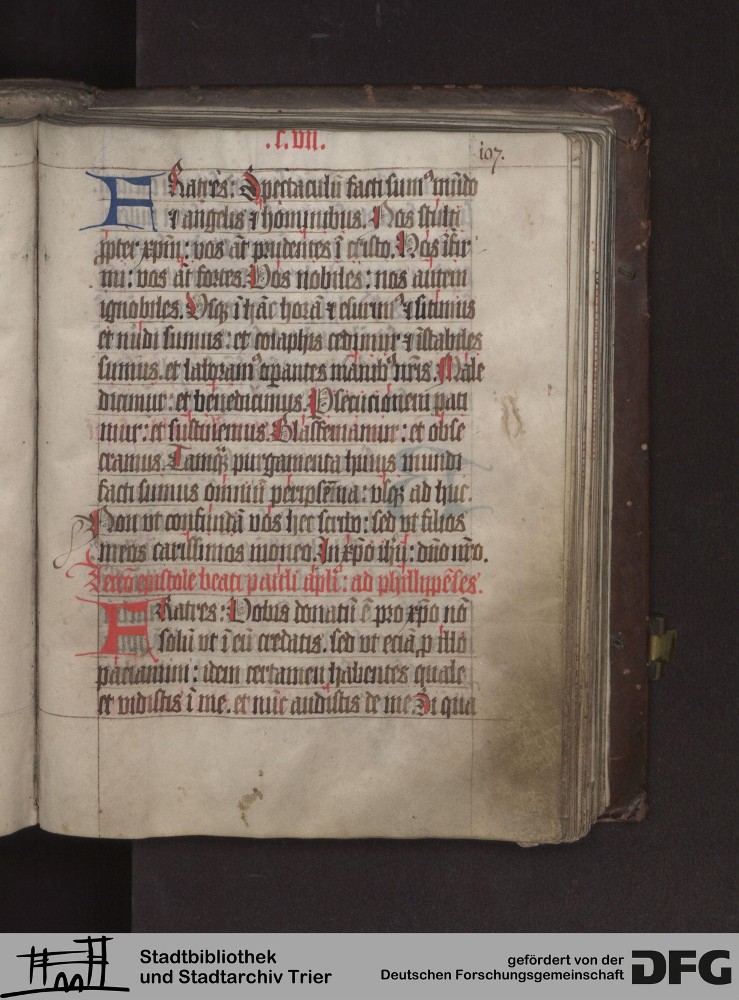 .c.vii.
107.
FRatres: Spectaculũ facti sumꝰ mũdo
⁊ angelis ⁊ hominibus. Nos stulti
ꝓpter xp̃m: vos aũt prudentes ĩ cristo. Nos ĩfir
mi: vos aũt fortes. Vos nobiles: nos autem
ignobiles. Vsqꝫ ĩ hãc horã ⁊ esurimꝰ ⁊ sitimus
et nudi sumus: et colaphis cedimur ⁊ ĩstabiles
sumus. et laboramꝰ oꝑantes manibꝰ nr̃is. Male
dicimur: et benedicimus. ꝑsecucionem pati
mur: et sustinemus. Blasfemamur: et obse
cramus. Tamqꝫ purgamenta huius mundi
facti sumus omniũ peripsẽma: vsqꝫ ad huc.
Non vt confundã vos hec scribo: sed vt filios
meos carissimos moneo. In xp̃o ihũ: dño nr̃o.
Lectõ epistole beati pauli apl̃i: ad phillipẽses.
FRatres: Vobis donatũ ẽ pro xp̃o nõ
solũ vt ĩ eũ credatis. sed vt eciã ꝓ illo
paciamini: idem certamen habentes quale
et vidistis ĩ me. et nũc audistis de me Si qua
Stadtbibliothek
und Stadtarchiv Trier
gefördert von der
Deutschen Forschungsgemeinschaft
DFG